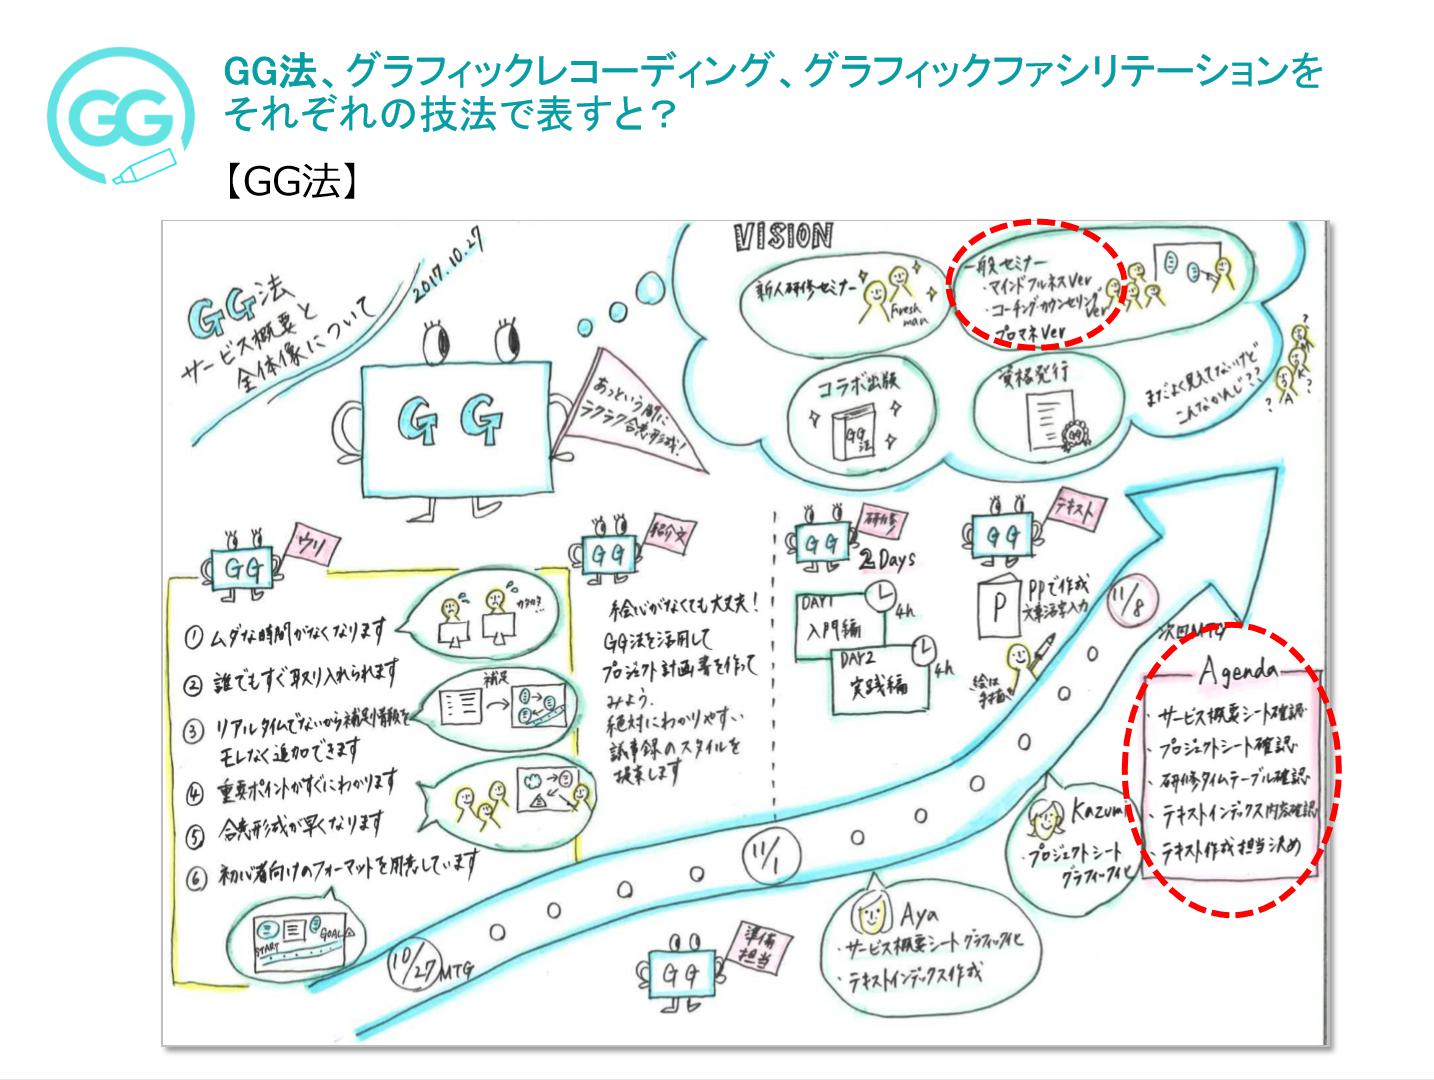 GG
GG法、グラフィックレコーディング、グラフィックファシリテーションを
それぞれの技法で表すと？
【GG法】
GG法
サービス概要と
全体像について
2017.10.27
GG
あっという間に
ラクラク合意形成！
VISION
新人研修セミナー
Fresh
man
一般セミナー
・マインドフルネスVer
・コーチング・カウンセリング
Ver
プロマネVer
コラボ出版
GG
法
資格発行
GG
まだよく見えてないけど
こんなかんじ？？
? ? ? ?
GG
ウリ
① ムダな時間がなくなります
② 誰でもすぐ取り入れられます
③ リアルタイムでないから補足情報を
モレなく追加できます
④ 重要ポイントがすぐにわかります
⑤ 合意形成が早くなります
⑥ 初心者向けのフォーマットを用意しています
カタカタ
補足
START
GOAL
GG
紹介文
絵心がなくても大丈夫！
GG法を活用して
プロジェクト計画書を作って
みよう.
絶対にわかりやすい
議事録のスタイルを
提案します
GG
研修
2Days
DAY1
入門編
4h
DAY2
実践編
4h
GG
テキスト
P
PPで作成
文章活字入力
絵は
手描き
10/27 MTG
11/1
11/8
次回MTG
Agenda
・サービス概要シート確認
・プロジェクトシート確認
・研修タイムテーブル確認
・テキストインデックス内容確認
・テキスト作成担当決め
Kazumi
・プロジェクトシート
グラフィック化
GG
準備
担当
Aya
・サービス概要シートグラフィック化
・テキストインデックス作成